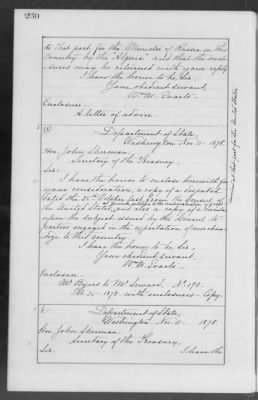 230
to that port, for the Minister of Russia in this
country by the Algeria and that the enclo-
sures may be returned with your reply.
I have the honor to be, Sir,
Your obedient servant,
Wm. M. Evarts.
Enclosure.
A letter of advice.
Department of State,
Washington Nov. 11- 1878.
Hon. John Sherman,
Secretary of the Treasury.
Sir:
I have the honor to enclose herewith for
your consideration, a copy of a despatch
dated the 25th October last from the Consul of
the United States and also a copy of a circular
upon the subject issued by the Consul to
parties engaged in the exportation of merchan-
dize to this country.
I have the honor to be, Sir,
Your obedient servant,
Wm. M. Evarts
Enclosure.
Mr. Byers to Mr. Seward. No. 190.
1878 with enclosures - Copy.
Department of State,
Washington Nov. 11- 1878.
Hon. John Sherman,
Secretary of the Treasury.
Sir. I have the
at that port for the United States